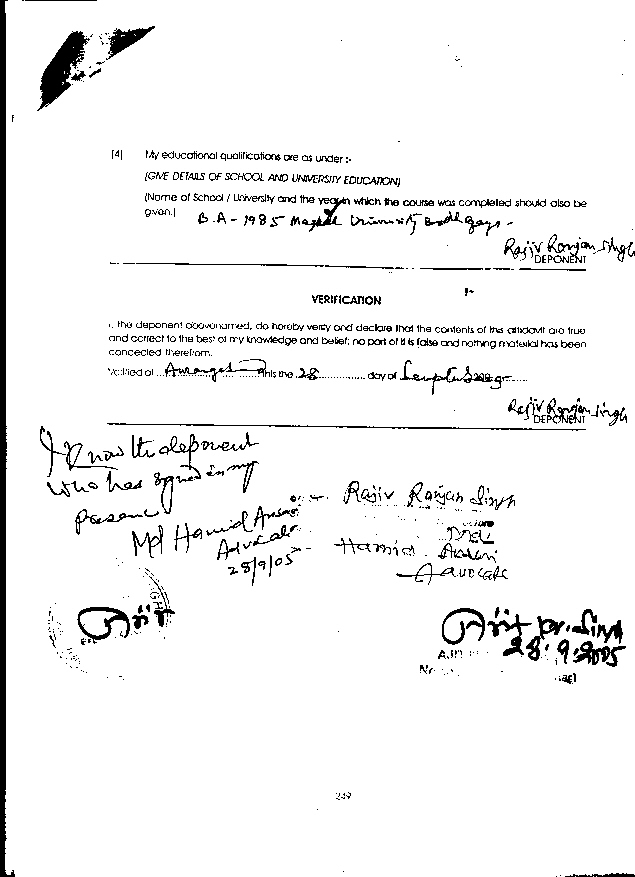 [4] My educational qualifications are as under :-
(GIVE DETAILS OF SCHOOL AND UNIVERSITY EDUCATION)
(Name of School / University and the year in which the course was completed should also be
given.) B.A - 1985 Magadh University Bodh gaya -
Rajiv Ranjan Singh
DEPONENT
VERIFICATION
I, the deponent abovenamed, do hereby verify and declare that the contents of this affidavit are true
and correct to the best of my knowledge and belief; no part of it is false and nothing material has been
concealed therefrom.
Verified at this the 28 day of
Rajiv Ranjan Singh
DEPONENT
I Know the deponent
who has signed in my
presence
Md Hamid Ansari
Advocate
28/9/05
Rajiv Ranjan Singh
Hamid Ansari
Advocate
28.9.2005
249